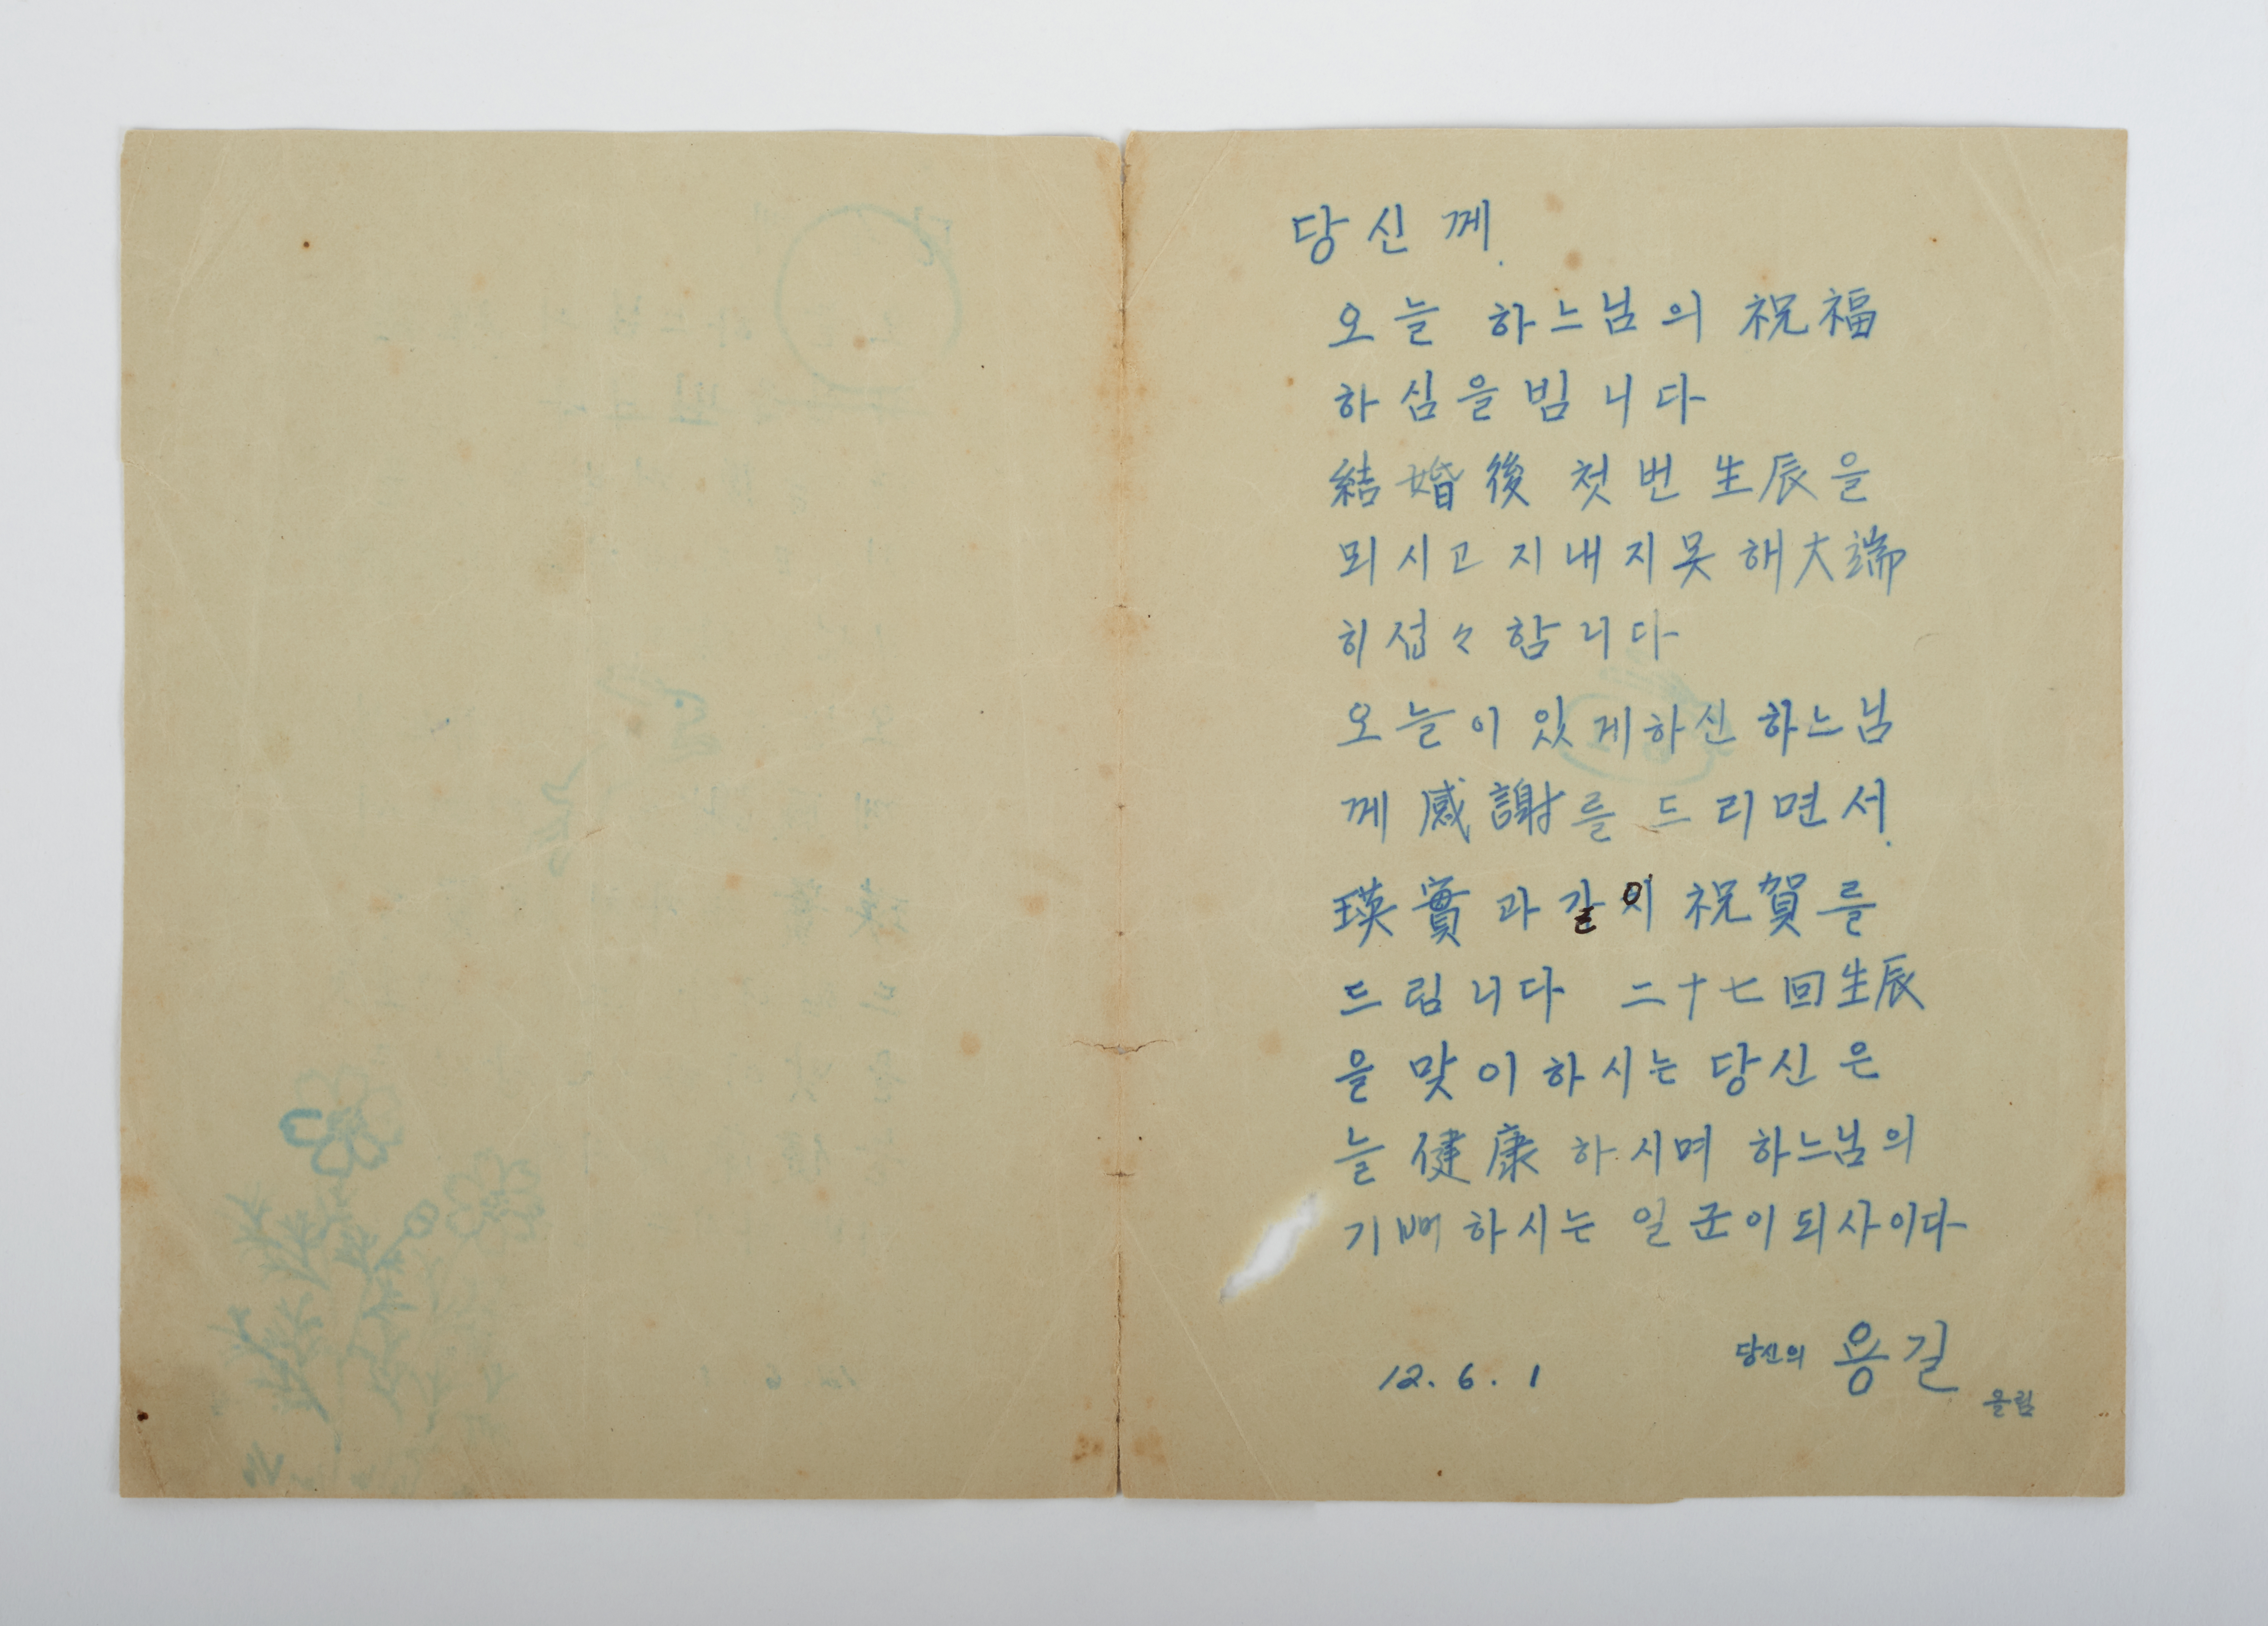 당신께.
오늘 하느님의 祝福
하심을 빔니다
結婚後 첫번 生辰을
뫼시고 지내지못해 大端
히 섭々함니다
오늘이 있게하신 하느님
께 感謝를 드리면서.
瑛實과 같이 祝賀를
드림니다 二十七回生辰
을 맞이하시는 당신은
늘 健康하시며 하느님의
기뻐하시는 일군이되사이다
당신의 용길
12.6.1
올림